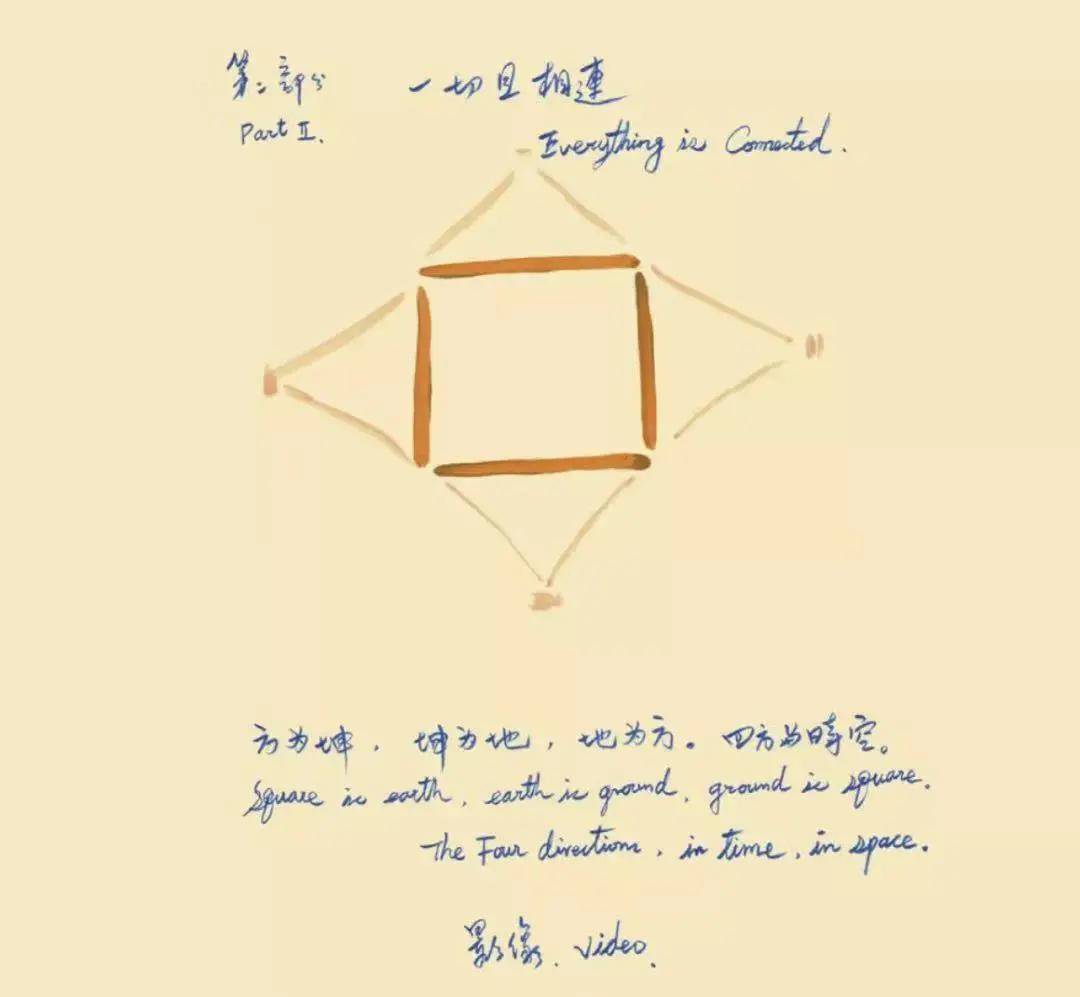 第二部分 一切且相連
Part II.
Everything is Connected.
方为坤，坤为地，地为方。四方为時空。
Square is earth, earth is ground, ground is square.
The Four directions, in time, in space.
影像. video.